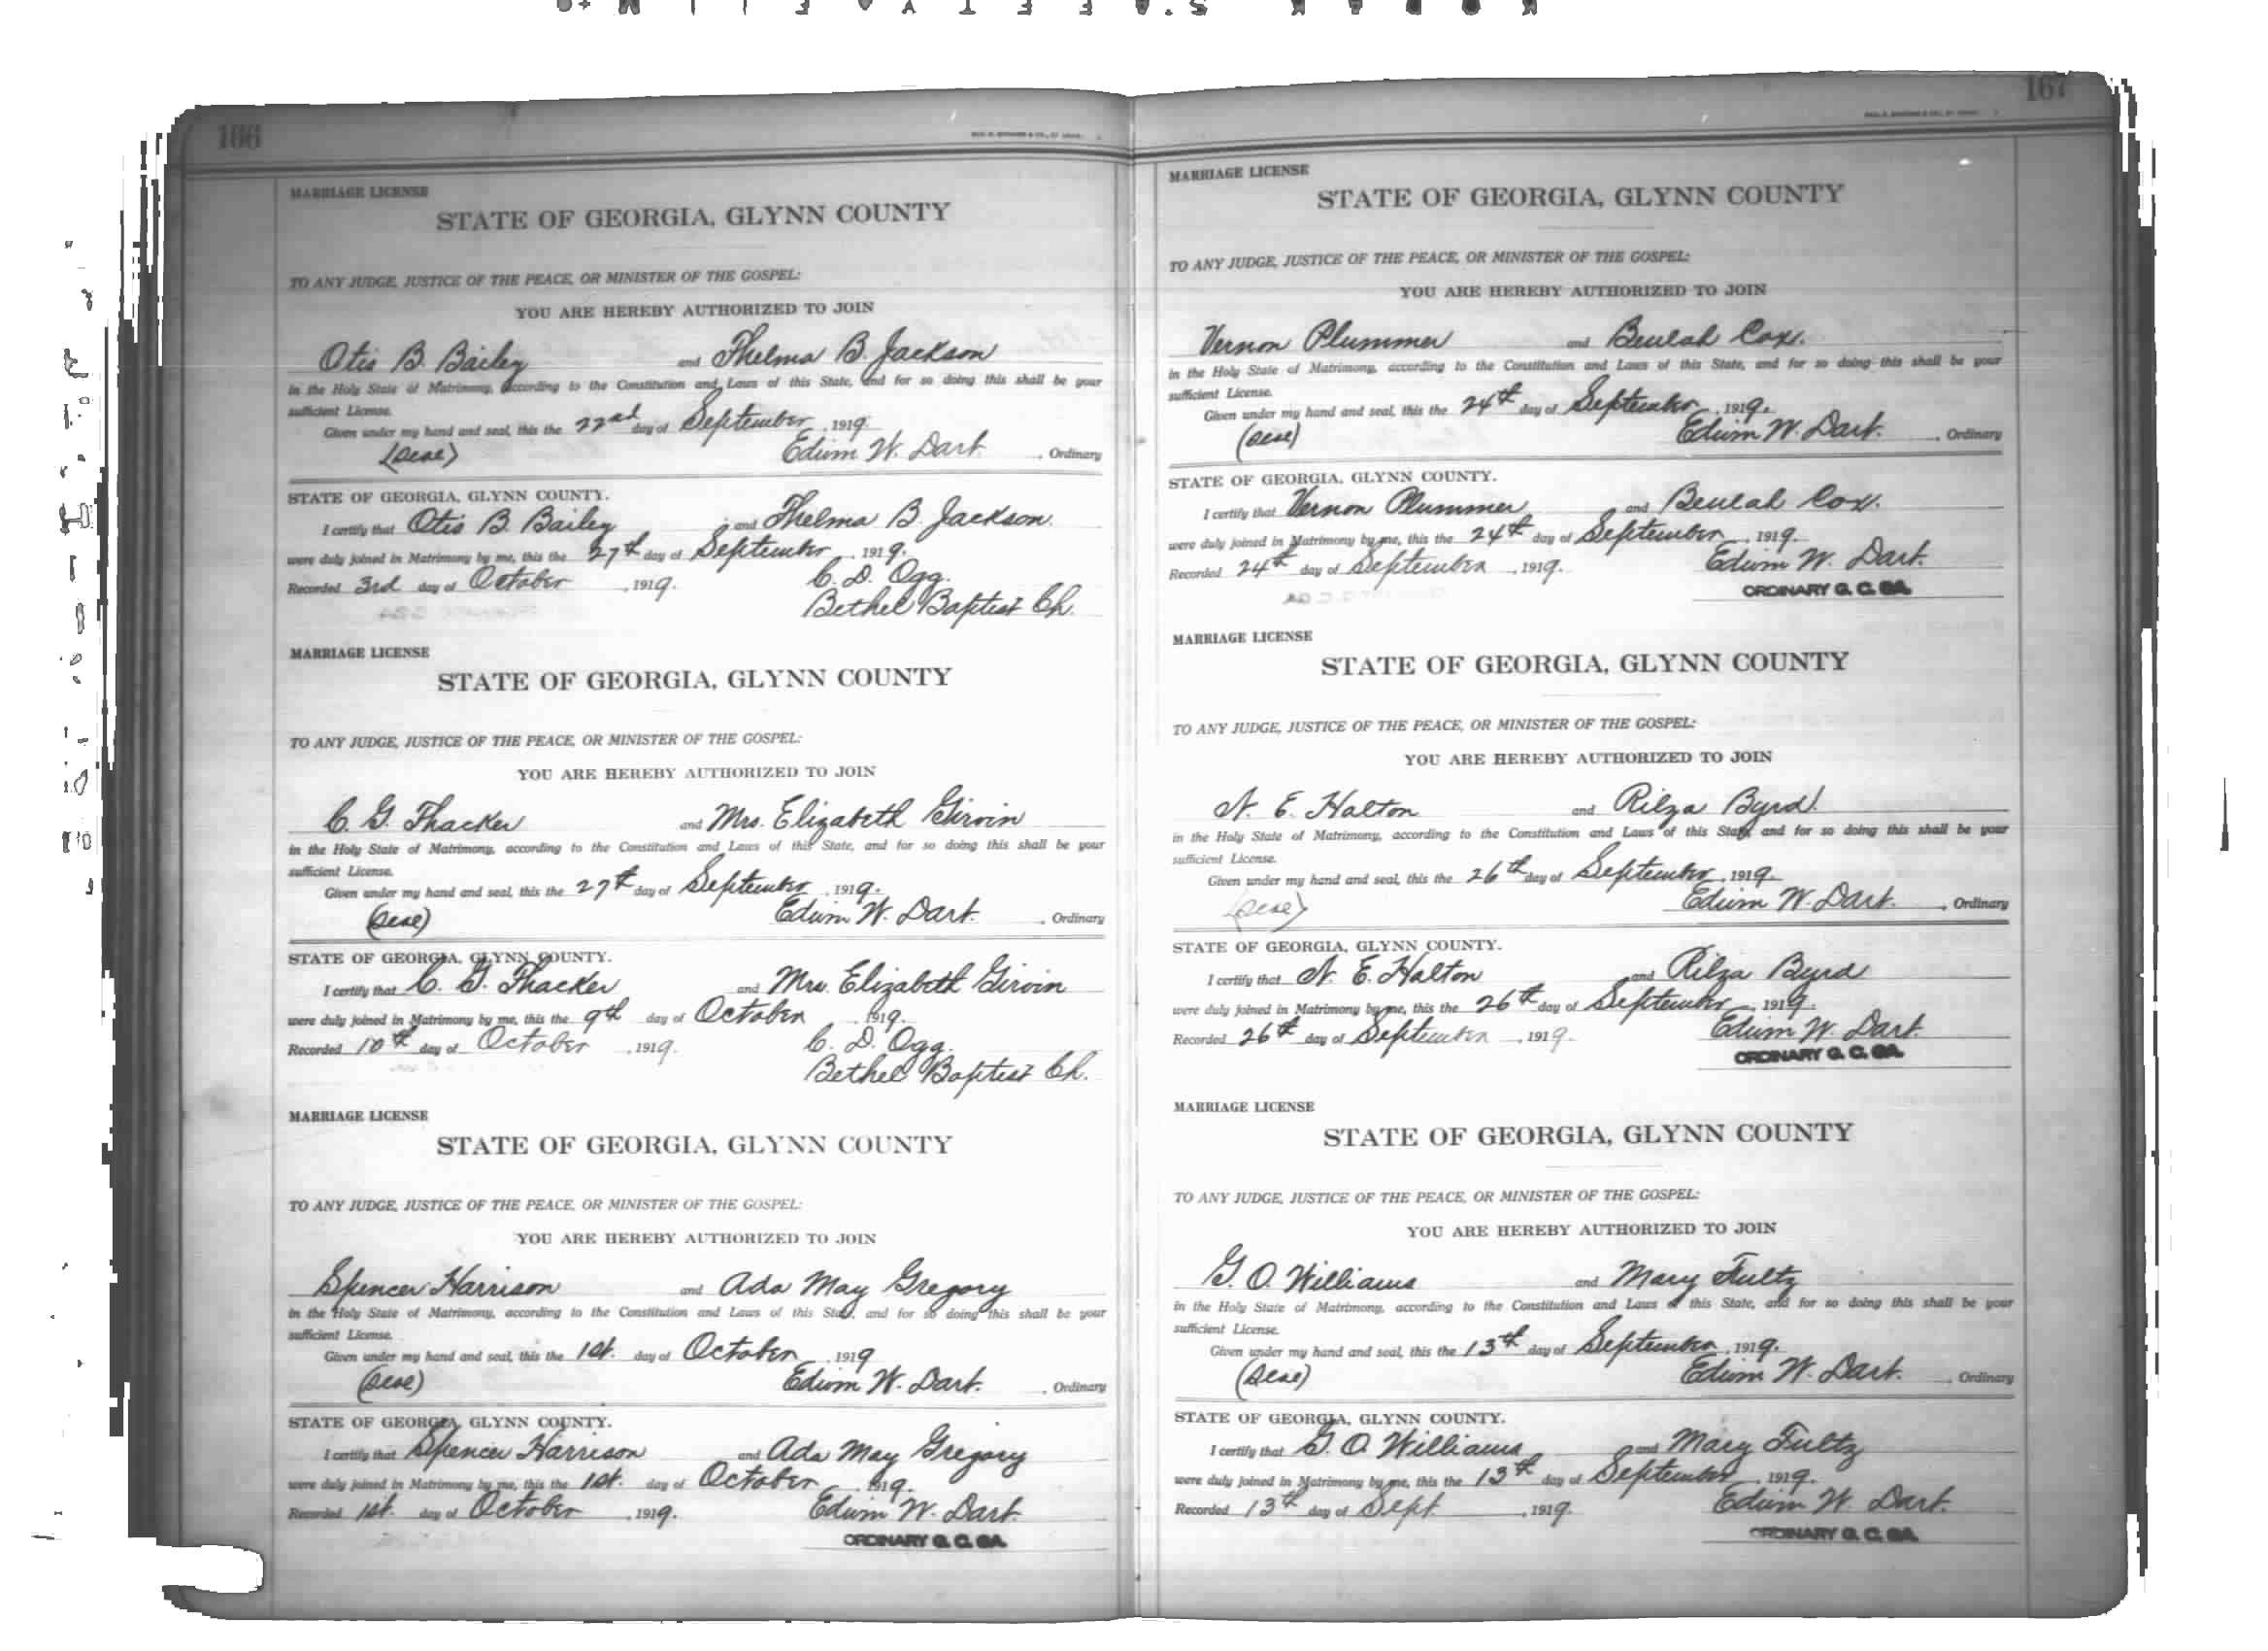 166
MARRIAGE LICENSE
STATE OF GEORGIA, GLYNN COUNTY
TO ANY JUDGE, JUSTICE OF THE PEACE, OR MINISTER OF THE GOSPEL:
YOU ARE HEREBY AUTHORIZED TO JOIN
Otis B. Bailey and Thelma B. Jackson
in the Holy State of Matrimony, according to the Constitution and Laws of this State, and for so doing this shall be your
sufficient License.
Given under my hand and seal, this the 22nd day of September, 1919.
(Seal) Edwin W. Dart. , Ordinary
STATE OF GEORGIA, GLYNN COUNTY.
I certify that Otis B. Bailey and Thelma B. Jackson.
were duly joined in Matrimony by me, this the 27th day of September, 1919.
Recorded 3rd day of October, 1919. C. D. Ogg.
Bethel Baptist Ch.
MARRIAGE LICENSE
STATE OF GEORGIA, GLYNN COUNTY
TO ANY JUDGE, JUSTICE OF THE PEACE, OR MINISTER OF THE GOSPEL:
YOU ARE HEREBY AUTHORIZED TO JOIN
C. G. Thacker and Mrs. Elizabeth Girvin
in the Holy State of Matrimony, according to the Constitution and Laws of this State, and for so doing this shall be your
sufficient License.
Given under my hand and seal, this the 27th day of September, 1919.
(Seal) Edwin W. Dart. , Ordinary
STATE OF GEORGIA, GLYNN COUNTY.
I certify that C. G. Thacker and Mrs. Elizabeth Girvin
were duly joined in Matrimony by me, this the 9th day of October, 1919.
Recorded 10th day of October, 1919. C. D. Ogg.
Bethel Baptist Ch.
MARRIAGE LICENSE
STATE OF GEORGIA, GLYNN COUNTY
TO ANY JUDGE, JUSTICE OF THE PEACE, OR MINISTER OF THE GOSPEL:
YOU ARE HEREBY AUTHORIZED TO JOIN
Spencer Harrison and Ada May Gregory
in the Holy State of Matrimony, according to the Constitution and Laws of this State, and for so doing this shall be your
sufficient License.
Given under my hand and seal, this the 1st. day of October, 1919
(Seal) Edwin W. Dart. , Ordinary
STATE OF GEORGIA, GLYNN COUNTY.
I certify that Spencer Harrison and Ada May Gregory
were duly joined in Matrimony by me, this the 1st. day of October, 1919.
Recorded 1st. day of October, 1919. Edwin W. Dart.
ORDINARY G. C. GA.
167
MARRIAGE LICENSE
STATE OF GEORGIA, GLYNN COUNTY
TO ANY JUDGE, JUSTICE OF THE PEACE, OR MINISTER OF THE GOSPEL:
YOU ARE HEREBY AUTHORIZED TO JOIN
Vernon Plummer and Beulah Cox.
in the Holy State of Matrimony, according to the Constitution and Laws of this State, and for so doing this shall be your
sufficient License.
Given under my hand and seal, this the 24th day of September, 1919.
(Seal) Edwin W. Dart. , Ordinary
STATE OF GEORGIA, GLYNN COUNTY.
I certify that Vernon Plummer and Beulah Cox.
were duly joined in Matrimony by me, this the 24th day of September, 1919.
Recorded 24th day of September, 1919. Edwin W. Dart.
ORDINARY G. C. GA.
MARRIAGE LICENSE
STATE OF GEORGIA, GLYNN COUNTY
TO ANY JUDGE, JUSTICE OF THE PEACE, OR MINISTER OF THE GOSPEL:
YOU ARE HEREBY AUTHORIZED TO JOIN
N. E. Halton and Rilza Byrd
in the Holy State of Matrimony, according to the Constitution and Laws of this State, and for so doing this shall be your
sufficient License.
Given under my hand and seal, this the 26th day of September, 1919.
(Seal) Edwin W. Dart. , Ordinary
STATE OF GEORGIA, GLYNN COUNTY.
I certify that N. E. Halton and Rilza Byrd
were duly joined in Matrimony by me, this the 26th day of September, 1919.
Recorded 26th day of September, 1919. Edwin W. Dart.
ORDINARY G. C. GA.
MARRIAGE LICENSE
STATE OF GEORGIA, GLYNN COUNTY
TO ANY JUDGE, JUSTICE OF THE PEACE, OR MINISTER OF THE GOSPEL:
YOU ARE HEREBY AUTHORIZED TO JOIN
G. O. Williams and Mary Fultz
in the Holy State of Matrimony, according to the Constitution and Laws of this State, and for so doing this shall be your
sufficient License.
Given under my hand and seal, this the 13th day of September, 1919.
(Seal) Edwin W. Dart. , Ordinary
STATE OF GEORGIA, GLYNN COUNTY.
I certify that G. O. Williams and Mary Fultz
were duly joined in Matrimony by me, this the 13th day of September, 1919.
Recorded 13th day of Sept., 1919. Edwin W. Dart.
ORDINARY G. C. GA.